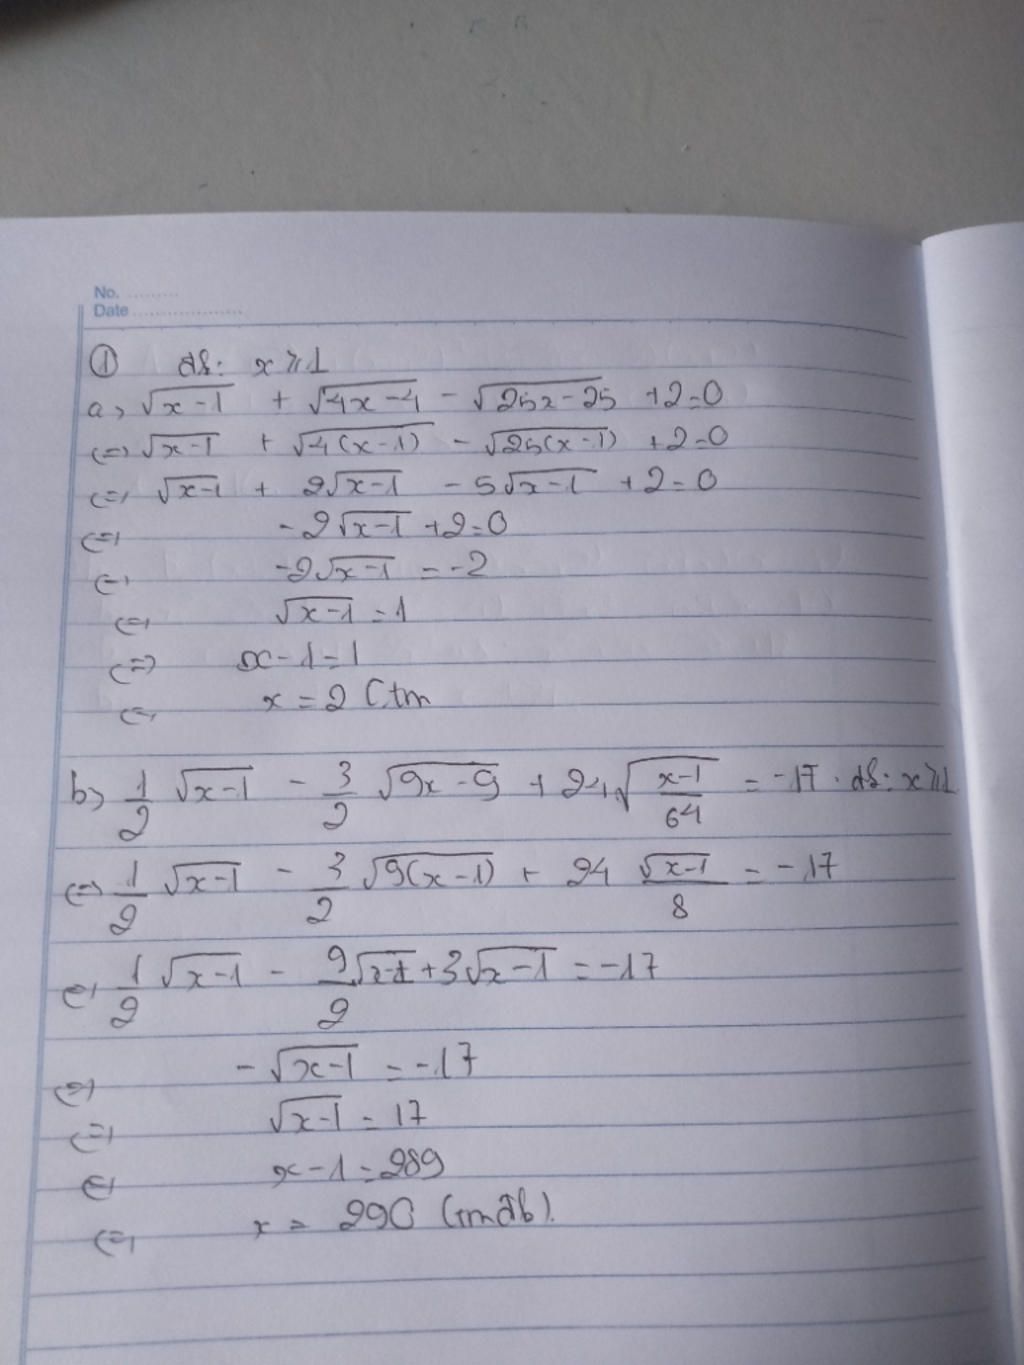 No. .........
Date ....................
① đk: x ⩾ 1
a, √(x-1) + √(4x-4) - √(25x-25) +2=0
<=> √(x-1) + √(4(x-1)) - √(25(x-1)) +2=0
<=> √(x-1) + 2√(x-1) - 5√(x-1) +2=0
<=> -2√(x-1) +2=0
<=> -2√(x-1) = -2
<=> √(x-1) = 1
<=> x-1=1
<=> x = 2 (tm
b, 1/2 √(x-1) - 3/2 √(9x-9) + 24√((x-1)/64) = -17. đk: x ⩾ 1
<=> 1/2 √(x-1) - 3/2 √(9(x-1)) + 24 √(x-1)/8 = -17
<=> 1/2 √(x-1) - 9/2 √(x-1) + 3√(x-1) = -17
<=> -√(x-1) = -17
<=> √(x-1) = 17
<=> x-1=289
<=> x = 290 (tmđk).